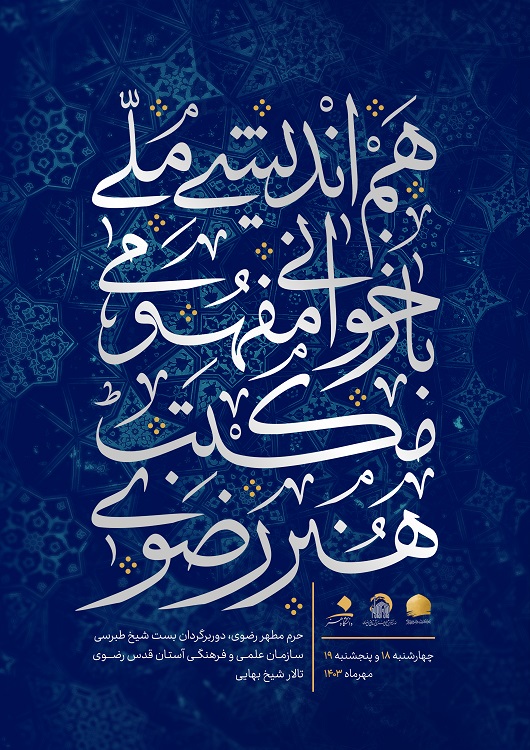 هَمْ‌اَنْدیشیِ مُلّی
بازخوانی مفهومی
مکتب
هُنَرِ رضوی
چهارشنبه ۱۸ و پنجشنبه ۱۹
مهرماه ۱۴۰۳
حرم مطهر رضوی، دوربرگردان بست شیخ طبرسی
سازمان علمی و فرهنگی آستان قدس رضوی
تالار شیخ بهایی